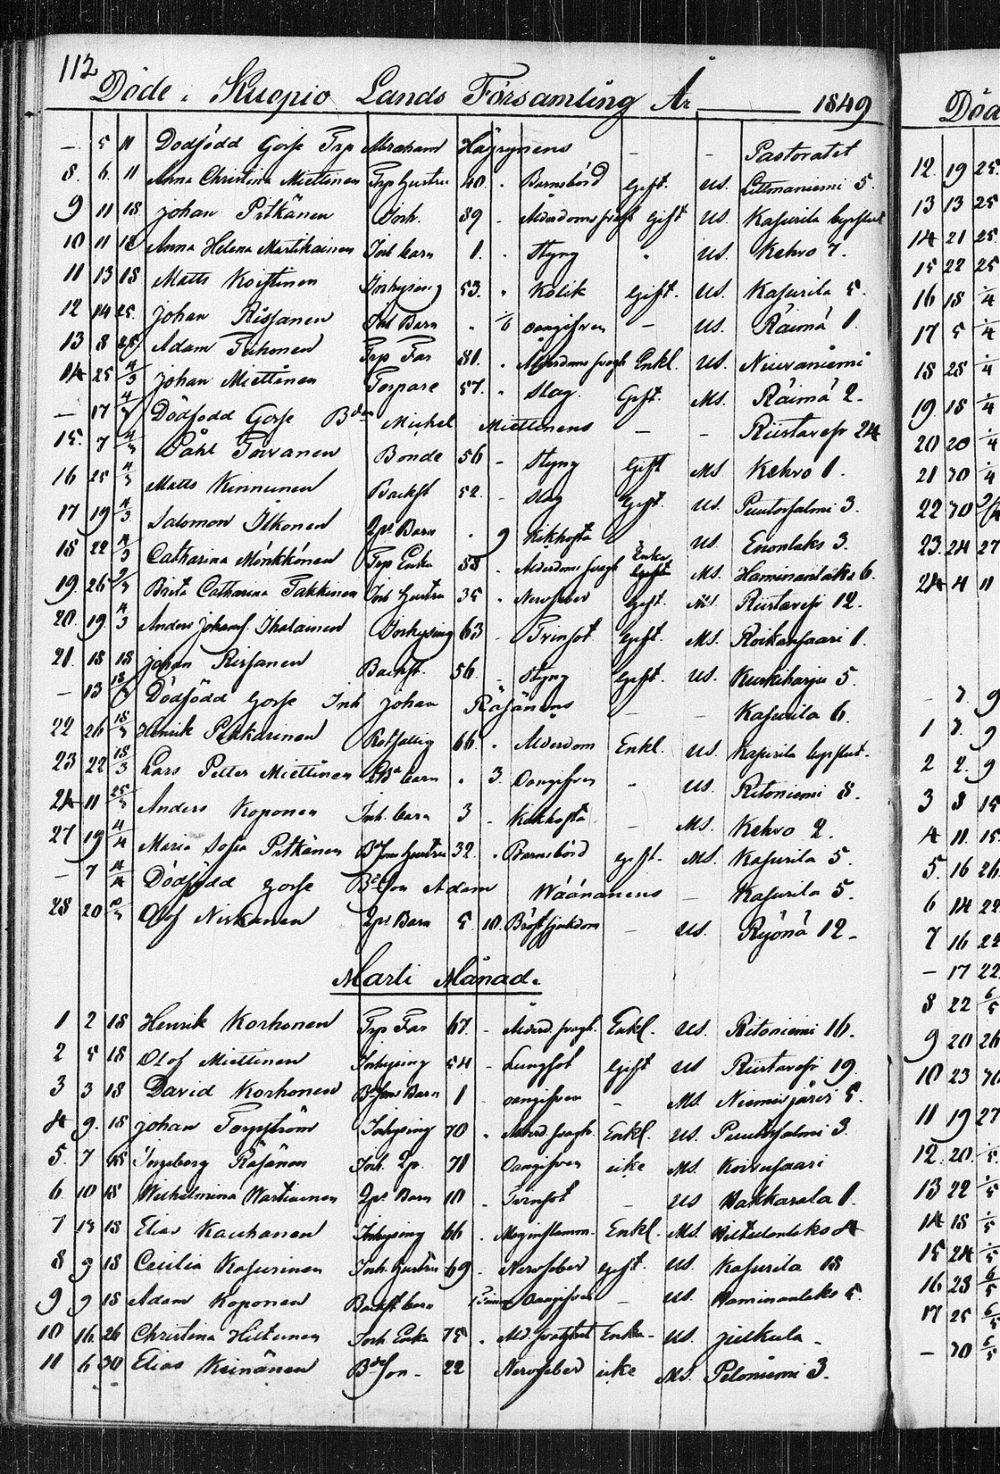 112
Döde i Kuopio Lands Församling År 1849
— 5 11 Dödfödd Gosse Trp Abraham Häyrynens — — Pastoratet
8. 6. 11 Anna Christina Miettinen Trp hustru 40. Barnsbörd Gift. us. Litmaniemi 5.
9 11 18 Johan Pitkänen Inh. 89 Ålderdoms Gift us. Kasurila
10 11 18 Anna Helena Martikainen Inh barn 1. Styng " us. Kehvo 7.
11 13 18 Matts Koistinen Inhysing 53. Kolik Gift. us. Kasurila 5.
12 14 25. Johan Rissanen Inh Barn oangifven — us. Räimä 1.
13 8 25 Adam Tuhonen Trp Far 81. Ålderdoms Enkl. us. Niuvaniemi
14 25 4/3 Johan Miettinen Torpare 57. Slag Gift. Ms. Räimä 2.
— 17 4/3 Dödfödd Gosse Bd Michel Miettinens — — Riistavesi 24
15. 7 4/3 Påhl Toivanen Bonde 56 Styng Gift Ms Kehvo 1.
16 25 4/3 Matts Kinnunen Backst 52. Slag Gift. us. Puutosalmi 3.
17 19 4/3 Salomon Itkonen Barn 9 Kikhosta us. Enonlaks 3.
18 22 4/3 Catharina Mönkkönen Trp Enka 58 Ålderdoms Enka Ms. Haminanlaks 6.
19. 26 Brita Catharina Takkinen Inh hustru 35 Nervfeber Gift. Ms. Riistavesi 12.
20. 19 4/3 Anders Johans. Ihalainen Inhysing 63 Tvinsot Gift. Ms. Roikansaari 1.
21. 18 18 Johan Rissanen Backst. 56. Styng Gift. us. Kurkiharju 5.
— 13 18/3 Dödfödd Gosse Inh Johan Räsänens — — Kasurila 6.
22 26 18/3 Henrik Pekkarinen Rotfattig 66. Ålderdom Enkl. us. Kasurila
23 22 18/3 Lars Petter Miettinen barn 3. Oangifven us. Ritoniemi 8.
24 11 25/3 Anders Koponen Inh. barn 3 Kikhosta — Ms. Kehvo 2.
27 19 4/4 Maria Sofia Pitkänen hustru 32. Barnsbörd gift. Ms. Kasurila 5.
— 7 4/4 Dödfödd Gosse Bd Son Adam Wäänänens — Kasurila 5.
28 20 Olof Niskanen Barn 5 10. Bröstsjukdom — us. Ryönä 12.
Marti Månad.
1 2 18 Henrik Korhonen Trp Far 67. Ålderd. Enkl. us. Ritoniemi 16.
2 5 18 Olof Miettinen Inhysing 54 Lungsot Gift us Riistavesi 19.
3 3 18 David Korhonen Barn 1 oangifven — Ms. Niemisjärvi 5.
4 9. 18 Johan Inhysing 70 Ålderd. Enkl. us. Puutosalmi 3.
5. 7 Ingeborg Räsänen Inh. 71 Oangifven icke Ms. Koivusaari
6. 10 18 Wilhelmina Martiainen Barn 10. Tvinsot — us Hakkarala 1.
7 15 18 Elias Kauhanen Inhysing 66 Enkl. Ms.
8 9 18 Cecilia Kasurinen Inh. hustru 69. Nervfeber gift. us. Kasurila 18
9 9 18 Adam Koponen Backst. barn Oangifven — us. Haminanlaks 5.
10 16. 26 Christina Hiltunen Inh Enka 75 Enka us. Julkula.
11 6 30 Elias Keinänen Bd Son. 22 Nervfeber icke Ms. Peloniemi 3.
Död
12. 19 25.
13 13 25.
14 21 25.
15 22 25
16 18 1/4
17 5 1/4
18 25 1/4
19. 18 1/4
20 20 1/4
21 30 1/4
22 30
23. 24 27
24 4 11
— 7. 9
1 7. 9
2 2. 9
3 8 15
4 11. 15.
5. 16 26.
6 14 22
7 16 22
— 17 22.
8 22 6/5
9 20 26
10 23 30
11 19 27
12. 20 5.
13 22 1/5
14 18 1/5
15 24 1/5
16 28 6/5
17 25 6/5
— 30 6/5